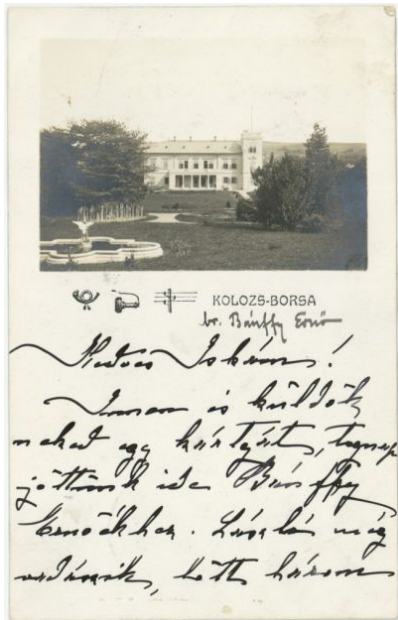 KOLOZS-BORSA
br. Bánffy Ernő
Kedves István!
Innen is küldök
neked egy kártyát, tegnap
jöttünk ide Bánffy
Ernőékhez. László még
vadászik, lőtt három